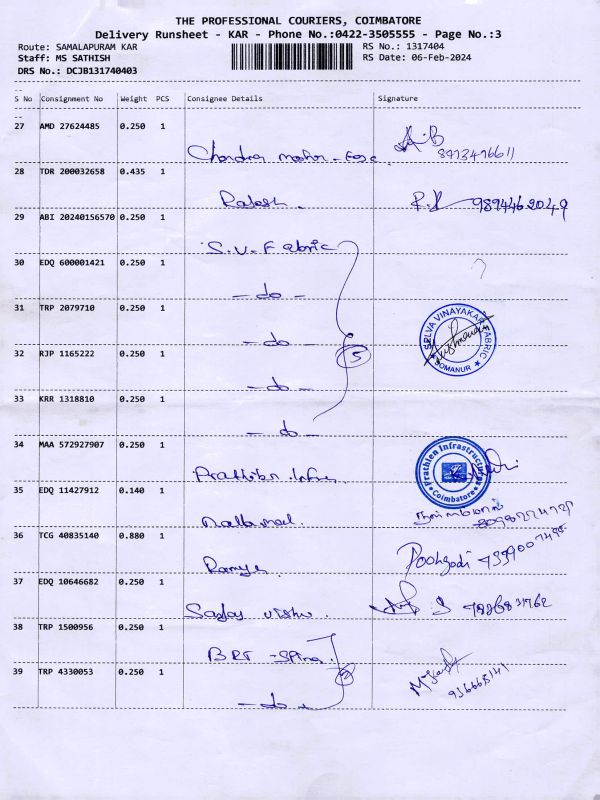 THE PROFESSIONAL COURIERS, COIMBATORE
Delivery Runsheet - KAR - Phone No.:0422-3505555 - Page No.:3
Route: SAMALAPURAM KAR RS No.: 1317404
Staff: MS SATHISH RS Date: 06-Feb-2024
DRS No.: DCJB131740403
S No Consignment No Weight PCS Consignee Details Signature
27 AMD 27624485 0.250 1
28 TDR 200032658 0.435 1
Rakesh. 9894462049
29 ABI 20240156570 0.250 1
S.V. Fabric
30 EDQ 600001421 0.250 1
- do -
31 TRP 2079710 0.250 1
- do -
SELVA VINAYAKAR FABRIC
SOMANUR
5
32 RJP 1165222 0.250 1
- do -
33 KRR 1318810 0.250 1
- do -
34 MAA 572927907 0.250 1
Prathien Infrastructures
Coimbatore
35 EDQ 11427912 0.140 1
36 TCG 40835140 0.880 1
Ramya. Poongodi
37 EDQ 10646682 0.250 1
38 TRP 1500956 0.250 1
39 TRP 4330053 0.250 1
- do -